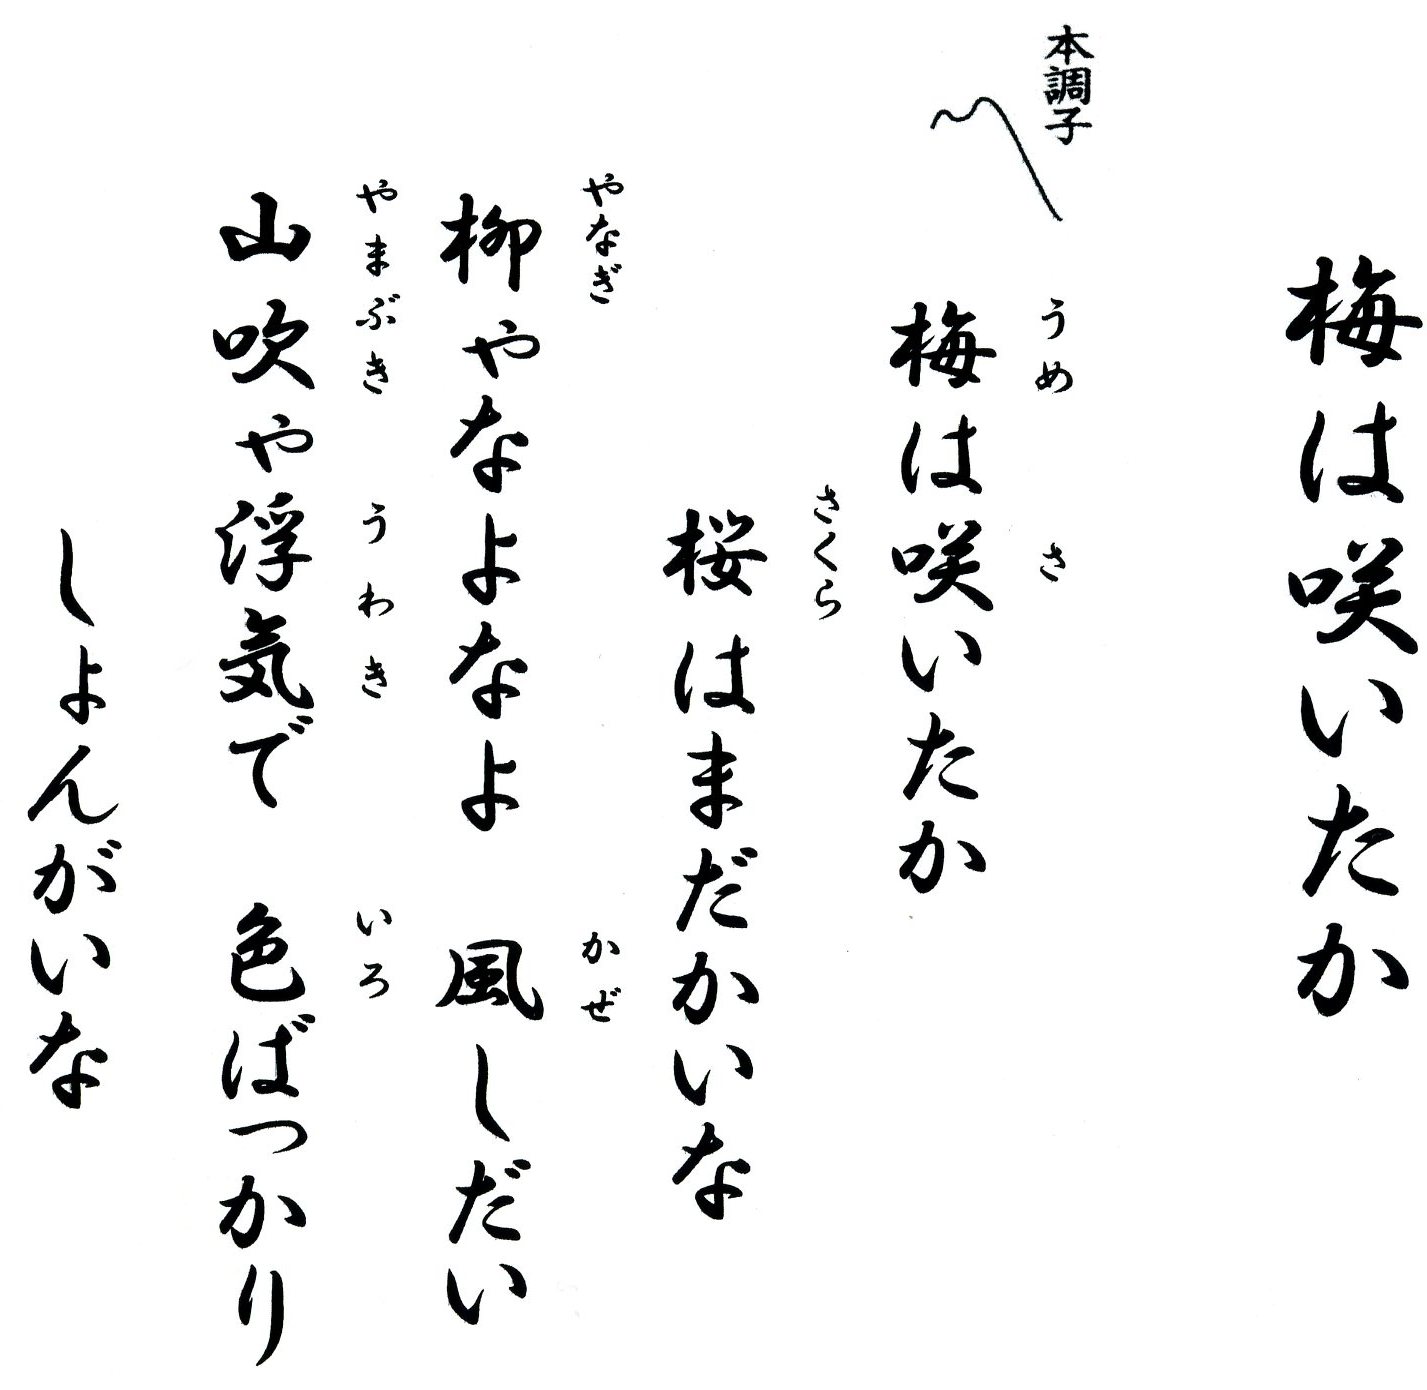 梅は咲いたか
本調子
うめ さ
梅は咲いたか
さくら
桜はまだかいな
やなぎ かぜ
柳やなよなよ 風しだい
やまぶき うわき いろ
山吹や浮気で 色ばっかり
しょんがいな